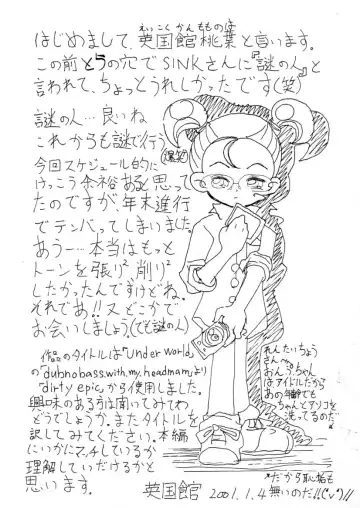 えいこくかん ももの は
はじめまして、英国館桃葉と言います。
この前とらの穴でSINKさんに『謎の人』と
言われて、ちょっとうれしかったです(笑)
謎の人…良いね
これからも謎で行う
(爆笑)
今回スケジュール的に
けっこう余裕あると思って
たのですが、年末進行
でテンパってしまいました。
あうー…本当はもっと
トーンを張り²削り²
したかったんですけどね。
それであ!!又どこかで
お会いしましょう。(でも謎の人)
作品のタイトルは「Under World」
の「dubnobass.with.my.headman」より
「dirty epic」から使用しました。
興味のある方は聞いてみては
どうでしょうか。またタイトルを
訳してみてください。本編
にいかにマッチしているか
理解していだけるかと
思います。
英国館 2001.1.4
れんたいちょう
さんへ
おんぷちゃん
はアイドルだから
あの年齢でも
洗ってるのだ
*だから恥垢も
無いのだ!!(°v°)//